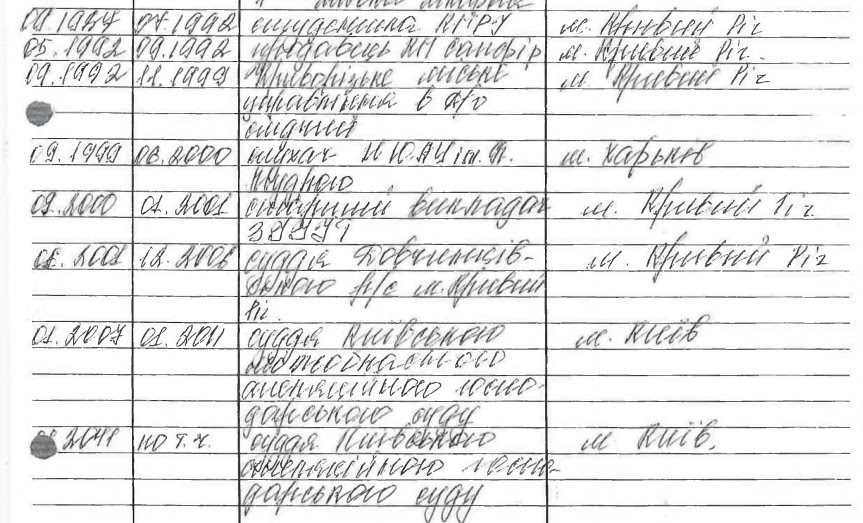 09.1987 07.1992 студентка КГРУ м. Кривий Ріг
05.1992 09.1992 продавець КП сапфір м. Кривий Ріг.
09.1992 11.1999 Криворізьке міське м. Кривий Ріг
управління в
09.1999 06.2000 НЮАУ ім. Я. м. Харьків
мудрого
09.2000 01.2001 старший викладач м. Кривий Ріг
01.2001 12.2006 суддя Довгинців- м. Кривий Ріг
ського р/с м. Кривий
Ріг.
01.2007 01.2011 суддя Київського м. Київ
апеляційного госпо-
дарського суду
2011 по т.ч. суддя Київського м Київ.
апеляційного госпо-
дарського суду